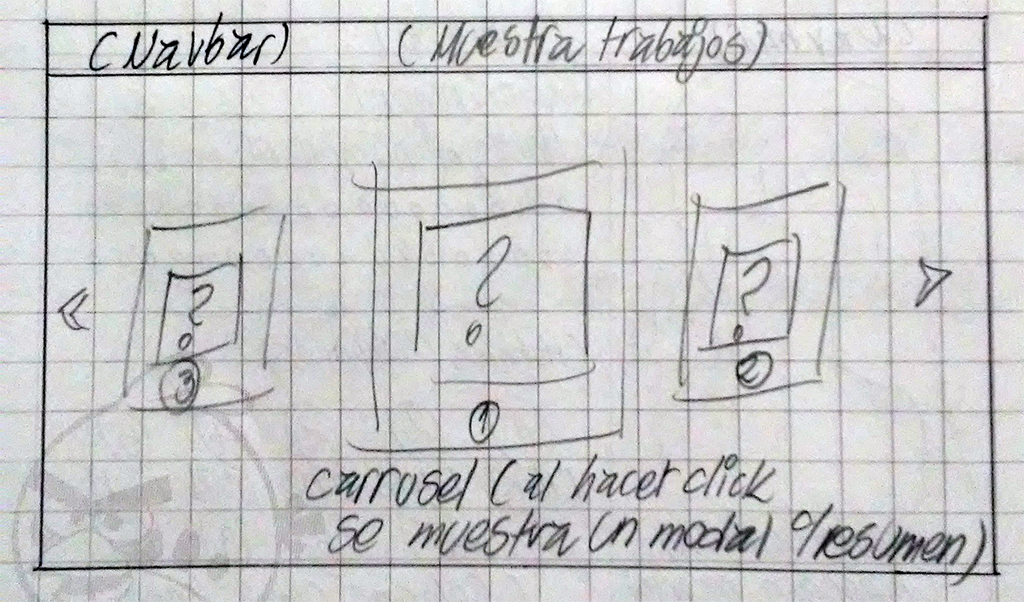 (Navbar) (Muestra trabajos)
? ? ?
3 1 2
carrusel (al hacer click
se muestra un modal c/resumen)